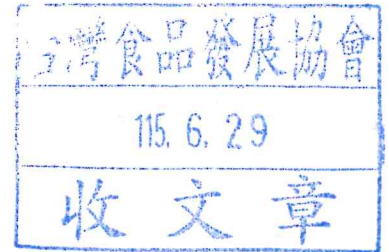 台灣食品發展協會
115. 6. 29
收文章